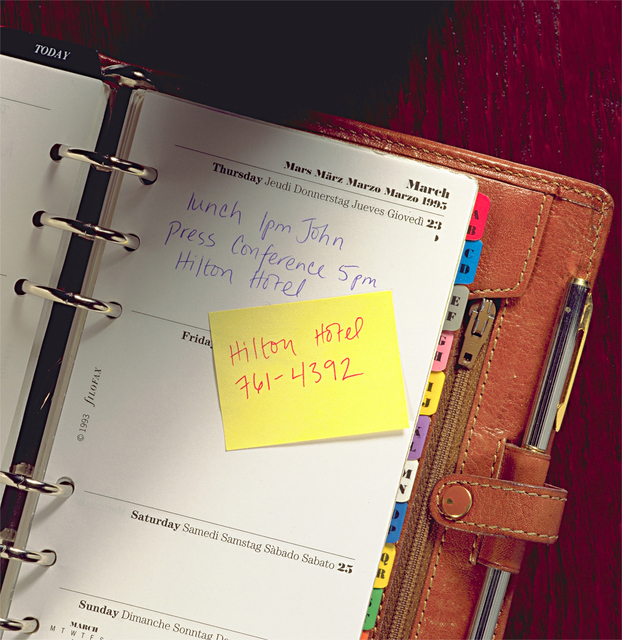 TODAY
March
Mars März Marzo Marzo 1995
Thursday Jeudi Donnerstag Jueves Giovedì 23
lunch 1pm John
press Conference 5pm
Hilton Hotel
Friday
Hilton Hotel
761-4392
© 1993 fiLOFAX
Saturday Samedi Samstag Sàbado Sabato 25
Sunday Dimanche Sonntag
MARCH
M T W T F S
A B
C D
E F
G H
I J
K L
M N
O P
Q R